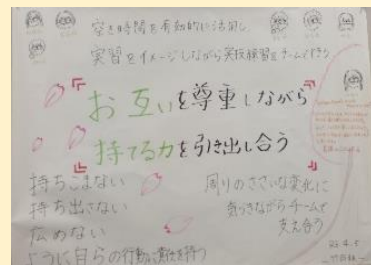 空き時間を有効的に活用し
実習をイメージしながら実技練習をチームで行う
お互いを尊重しながら
持てる力を引き出し合う
持ちこまない
持ち出さない
広めない
ように自らの行動に責任を持つ
周りのささいな変化に
気づきながらチームで
支え合う